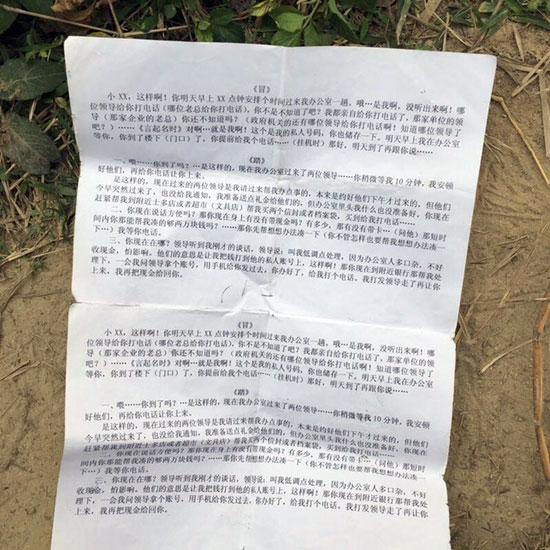 《冒》
小 XX,这样啊!你明天早上 XX 点钟安排个时间过来我办公室一趟,哦…是我啊,没听出来啊!哪
位领导给你打电话(哪位老总给你打电话),你不是不知道了吧?我都亲自给你打电话了,那家单位的领
导(那家企业的老总)你还不知道吗?(政府机关的还有哪位领导给你打电话啊!知道哪位领导了
吧?)……《言起名时》对啊…就是我啊!这个是我的私人号码,你也储存一下。明天早上我在办公室
等你,你到了楼下(门口)了,你提前给我个电话……(挂机时)那好,明天到了再跟你说……
《踏》
一、喂……你到了吗?…是这样的,现在我办公室过来了两位领导……你稍微等我 10 分钟,我安顿
好他们,再给你电话让你上来。
是这样的,现在过来的两位领导是我请过来帮我办点事的,本来是约好他们下午才过来的,但他们
今早突然过来了,也没给我通知,我准备送点礼金给他们的,但办公室里头我什么也没准备好,你现在
赶紧帮我到附近士多店或者超市(文具店)帮我买两个信封或者档案袋,买到给我打电话……
二、你现在说话方便吗?那你现在身上有没有带现金吗?有多少,那有没有带卡……(问他)那短时
间内你那能帮我凑的够两万块钱吗?……那你先帮想想办法凑一下(你不管怎样也要帮我想想办法凑一
下)我等你电话。
三、你现在在哪?领导听到我刚才的谈话,领导说:叫我低调点处理,因为办公室人多口杂,不好
收现金,怕影响。他们的意思是让我把钱打到他的私人账号上,这样啊!那你现在到附近银行那帮我处
理下,一会我问领导拿个账号,用手机给你发过去,你办好了,给我打个电话。我打发领导走了再让你
上来,我再把现金给回你。
《冒》
小 XX,这样啊!你明天早上 XX 点钟安排个时间过来我办公室一趟,哦…是我啊,没听出来啊!哪
位领导给你打电话(哪位老总给你打电话),你不是不知道了吧?我都亲自给你打电话了,那家单位的领
导(那家企业的老总)你还不知道吗?(政府机关的还有哪位领导给你打电话啊!知道哪位领导了
吧?)……《言起名时》对啊…就是我啊!这个是我的私人号码,你也储存一下。明天早上我在办公室
等你,你到了楼下(门口)了,你提前给我个电话……(挂机时)那好,明天到了再跟你说……
《踏》
一、喂……你到了吗?…是这样的,现在我办公室过来了两位领导……你稍微等我 10 分钟,我安顿
好他们,再给你电话让你上来。
是这样的,现在过来的两位领导是我请过来帮我办点事的,本来是约好他们下午才过来的,但他们
今早突然过来了,也没给我通知,我准备送点礼金给他们的,但办公室里头我什么也没准备好,你现在
赶紧帮我到附近士多店或者超市(文具店)帮我买两个信封或者档案袋,买到给我打电话……
二、你现在说话方便吗?那你现在身上有没有带现金吗?有多少,那有没有带卡……(问他)那短时
间内你那能帮我凑的够两万块钱吗?……那你先帮想想办法凑一下(你不管怎样也要帮我想想办法凑一
下)我等你电话。
三、你现在在哪?领导听到我刚才的谈话,领导说:叫我低调点处理,因为办公室人多口杂,不好
收现金,怕影响。他们的意思是让我把钱打到他的私人账号上,这样啊!那你现在到附近银行那帮我处
理下,一会我问领导拿个账号,用手机给你发过去,你办好了,给我打个电话。我打发领导走了再让你
上来,我再把现金给回你。